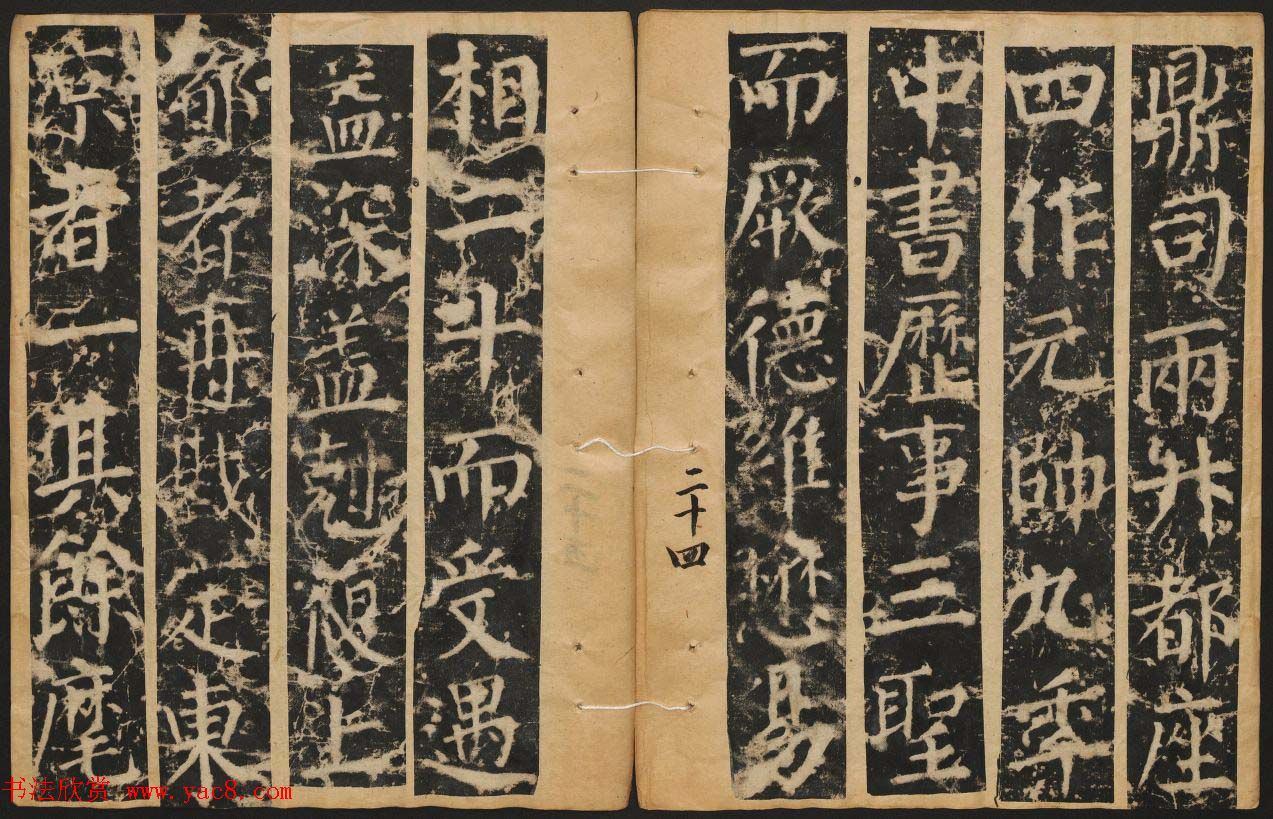 鼎司兩升都座
四作元帥九年
中書歷事三聖
而厥德維懋易
二十四
相二十而受遇
益深盖尅復上
都者再戡定東
京者一其餘麾
书法欣赏 www.yac8.com